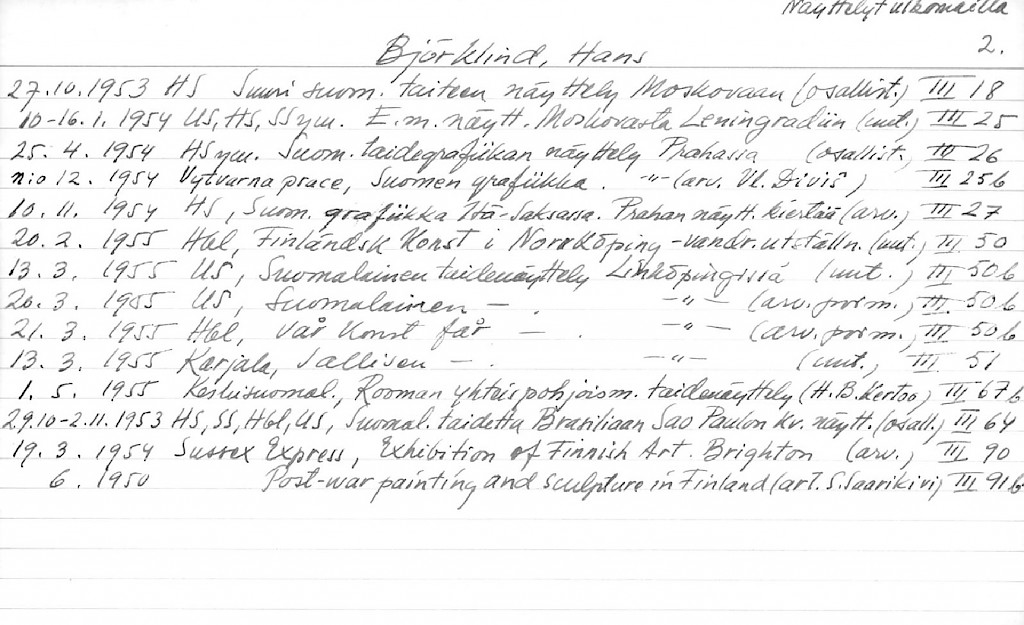 Näyttelyt ulkomailla
2.
Björklind, Hans
27.10.1953 HS Suuri suom. taiteen näyttely Moskovaan (osallist.) III 18
10-16.1.1954 US, HS, SSym. E.m. näytt. Moskovasta Leningradiin (uut.) III 25
25.4.1954 HSym. Suom. taidegrafiikan näyttely Prahassa (osallist.) III 26
n:o 12. 1954 Vytvarna prace, Suomen grafiikka. -"- (arv. Vl. Diviš) III 25b
10.11.1954 HS, Suom. grafiikka Itä-Saksassa. Prahan näytt. kiertää (arv.) III 27
20.2.1955 Hbl, Finländsk Konst i Norrköping - vandr. utställn. (uut.) III 50
13.3.1955 US, Suomalainen taidenäyttely Linköpingissä (uut.) III 50b
20.3.1955 US, Suomalainen — . -"- (arv. 
 III 50b
21.3.1955 Hbl, Vår Konst får — . -"- (arv. 
 III 50b
13.3.1955 Karjala, — -"- (uut.) III 51
1.5.1955 Keskisuomal., Rooman yhteispohjoism. taidenäyttely (H.B. Kertoo) III 67b
29.10-2.11.1953 HS, SS, Hbl, US, Suomal. taidetta Brasiliaan Sao Paulon kv. näytt. (osall.) III 64
19.3.1954 Sussex Express, Exhibition of Finnish Art. Brighton (arv.) III 90
6. 1950 Post-war painting and sculpture in Finland (art. S. Saarikivi) III 91b